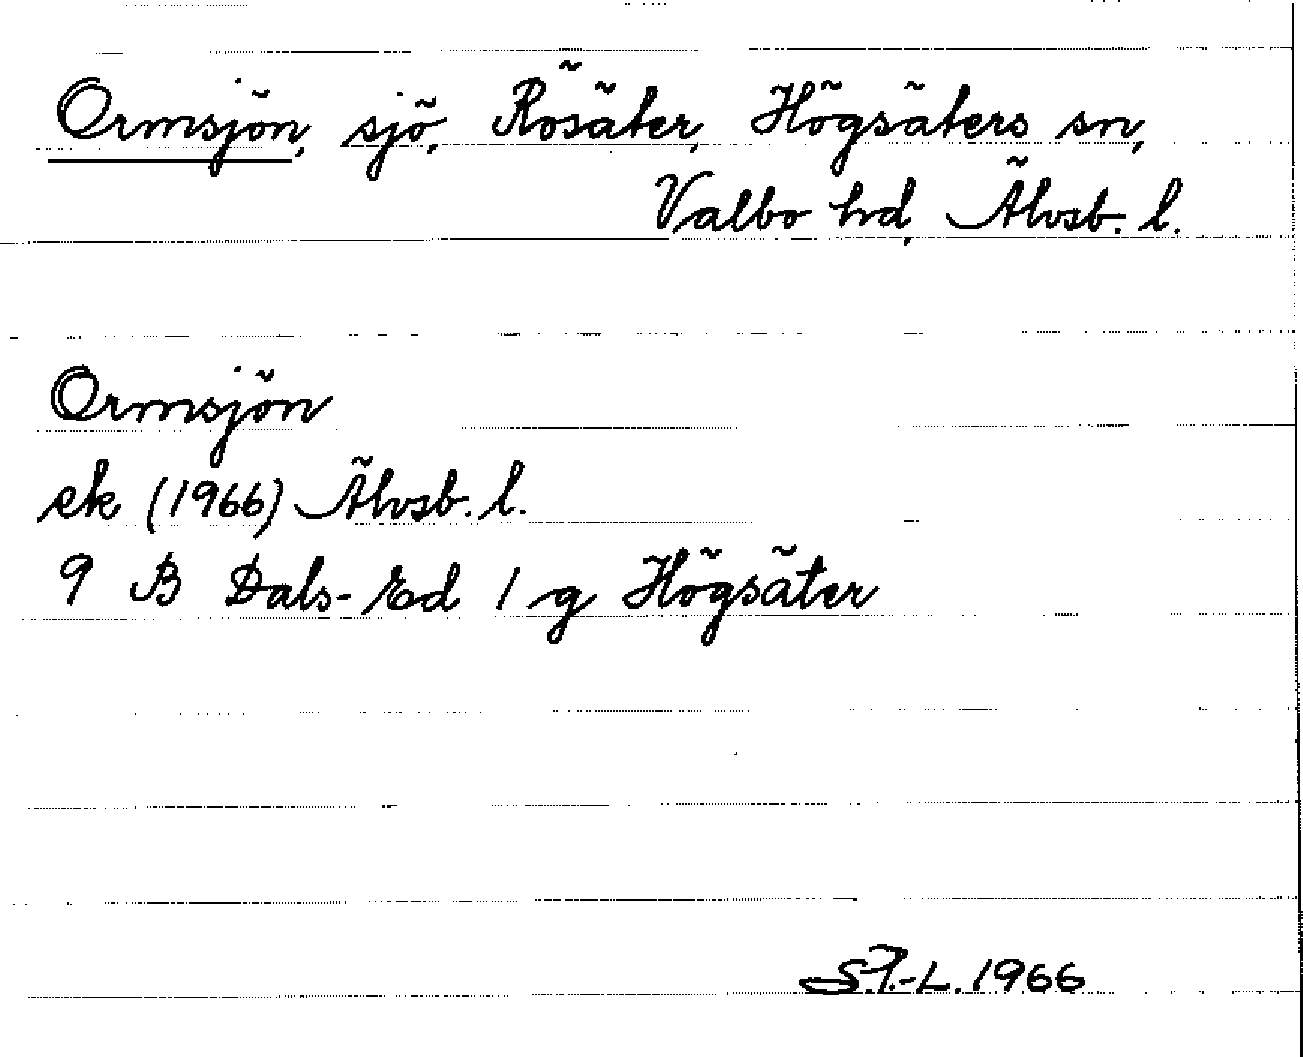 Ormsjön, sjö, Rösäter, Högsäters sn,
Valbo hd, Älvsb. l.
Ormsjön
ek (1966) Älvsb. l.
9 B Dals-Ed 1 g Högsäter
S.F.-L. 1966